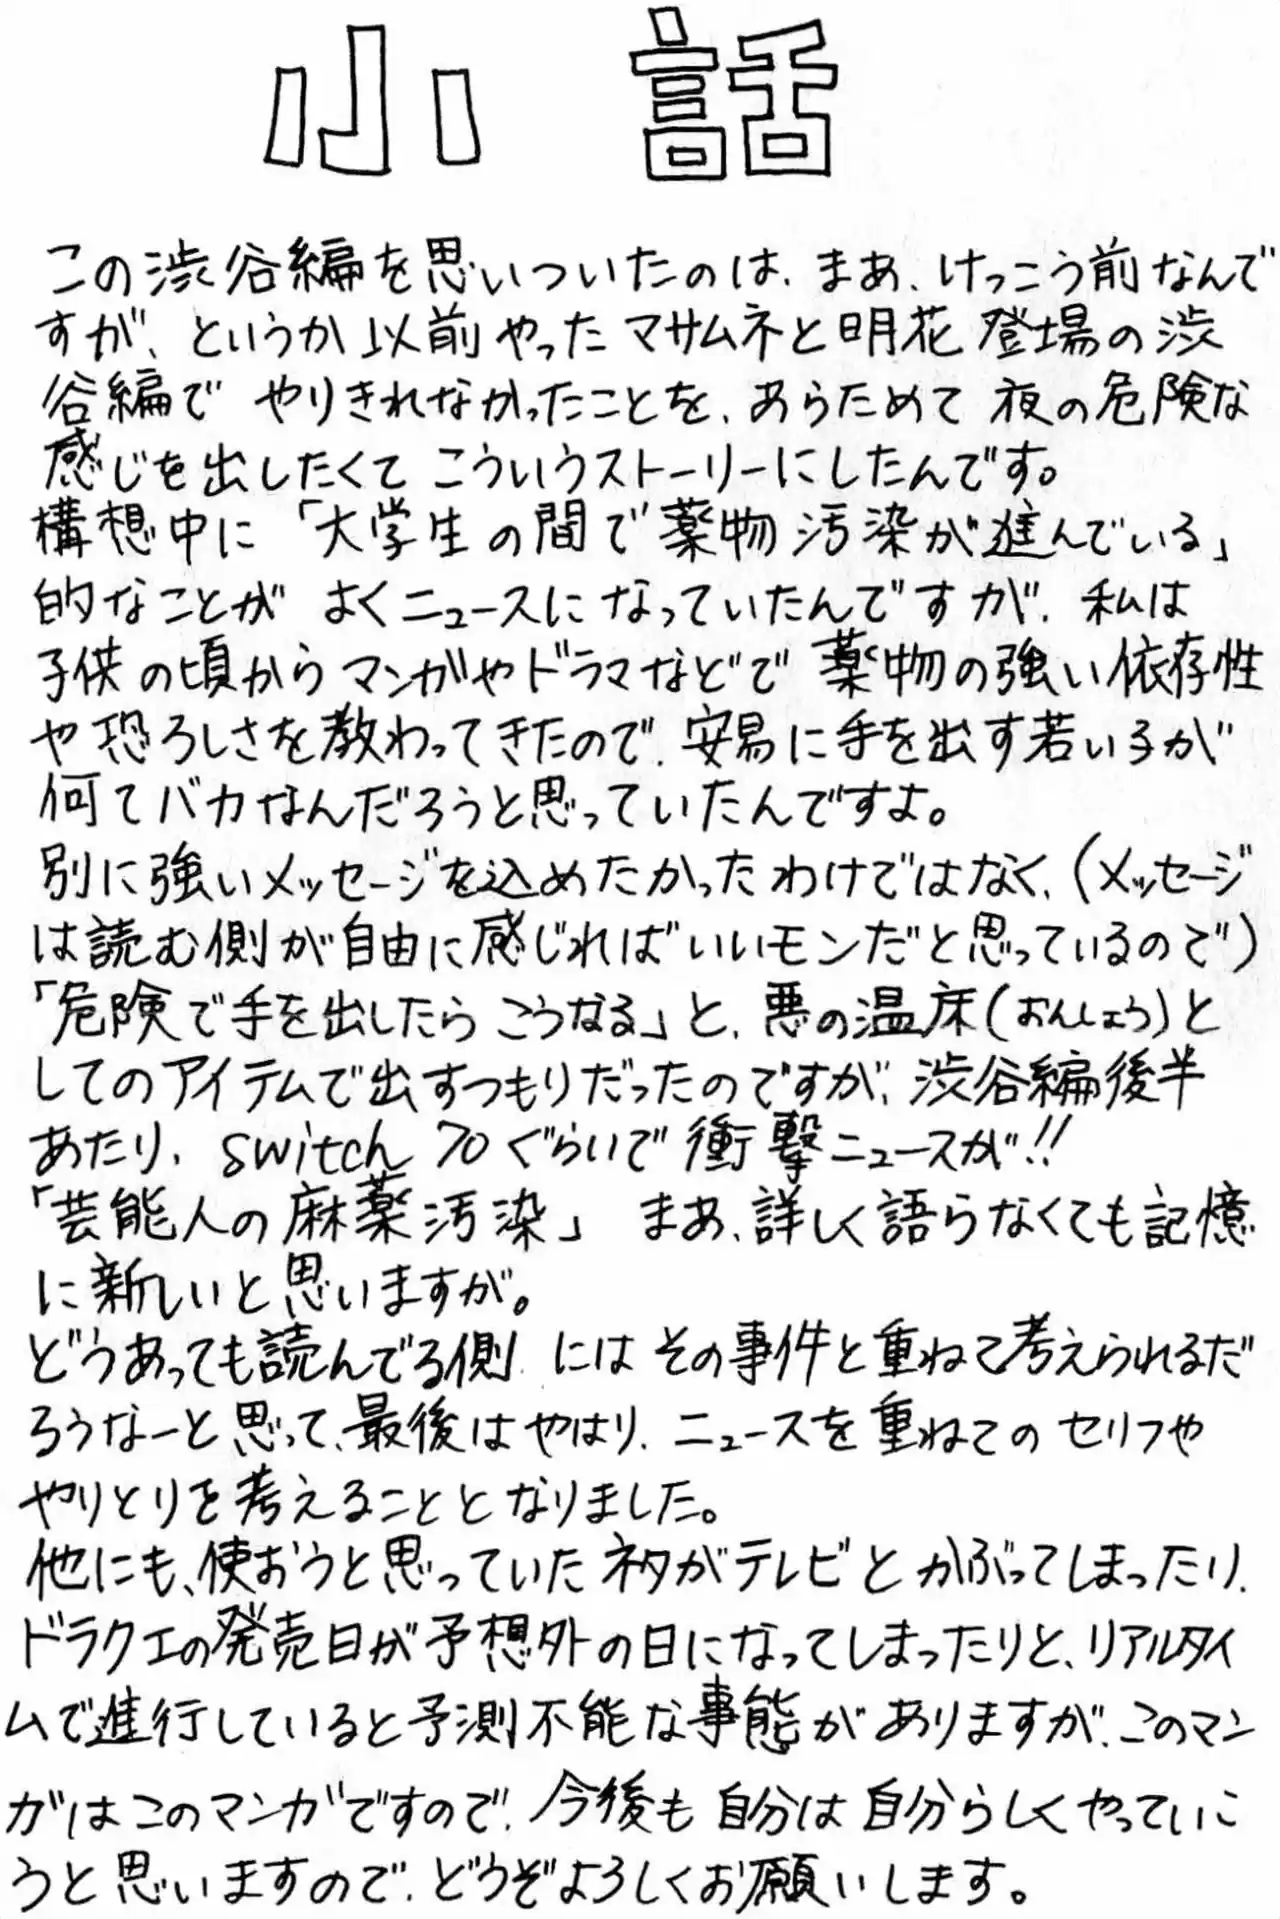 小話
この渋谷編を思いついたのは、まあ、けっこう前なんで
すが、というか以前やったマサムネと明花登場の渋
谷編でやりきれなかったことを、あらためて夜の危険な
感じを出したくてこういうストーリーにしたんです。
構想中に「大学生の間で薬物汚染が進んでいる」
的なことがよくニュースになっていたんですが、私は
子供の頃からマンガやドラマなどで薬物の強い依存性
や恐ろしさを教わってきたので、安易に手を出す若い子が
何てバカなんだろうと思っていたんですよ。
別に強いメッセージを込めたかったわけではなく、(メッセージ
は読む側が自由に感じればいいモンだと思っているので)
「危険で手を出したらこうなる」と、悪の温床(おんしょう)と
してのアイテムで出すつもりだったのですが、渋谷編後半
あたり、switch 70ぐらいで衝撃ニュースが!!
「芸能人の麻薬汚染」 まあ、詳しく語らなくても記憶
に新しいと思いますが。
どうあっても読んでる側にはその事件と重ねて考えられるだ
ろうなーと思って、最後はやはり、ニュースを重ねてのセリフや
やりとりを考えることとなりました。
他にも、使おうと思っていたネタがテレビとかぶってしまったり、
ドラクエの発売日が予想外の日になってしまったりと、リアルタイ
ムで進行していると予測不能な事態がありますが、このマン
ガはこのマンガですので、今後も自分は自分らしくやっていこ
うと思いますので、どうぞよろしくお願いします。